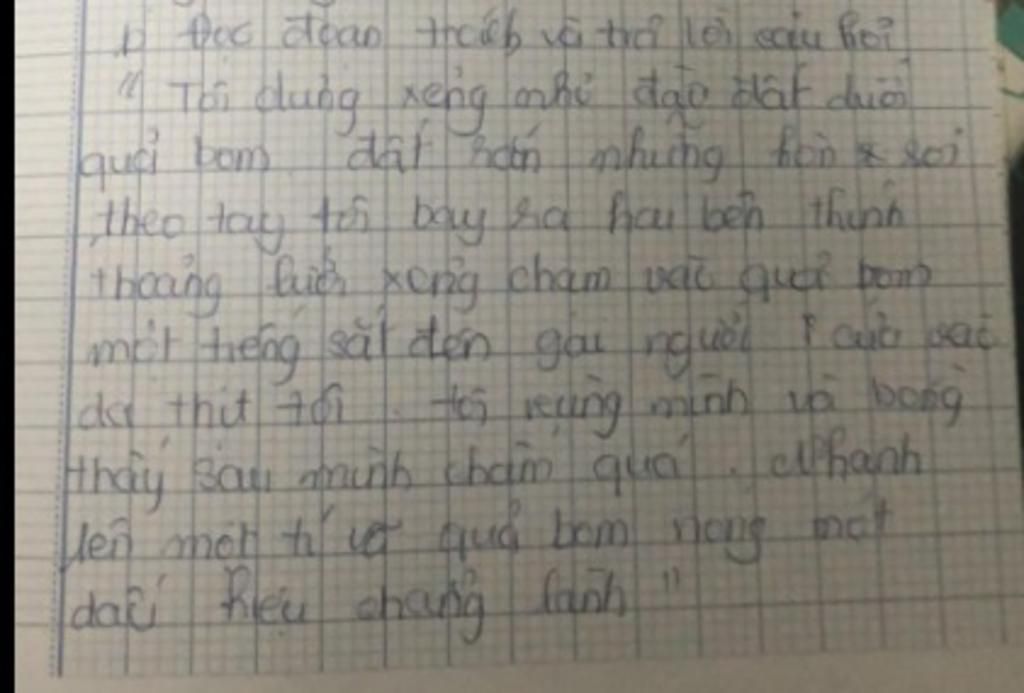 b Đọc đoạn trích và trả lời câu hỏi
" Tôi dùng xẻng nhỏ đào đất dưới
quả bom đất rắn những hòn sỏi
theo tay tôi bay ra hai bên thỉnh
thoảng lưỡi xẻng chạm vào quả bom
một tiếng sắt đến gai người cứa vào
da thịt tôi . tôi rùng mình và bỗng
thấy sau mình chậm quá . Nhanh
lên một tí vỏ quả bom nóng một
dấu hiệu chẳng lành "